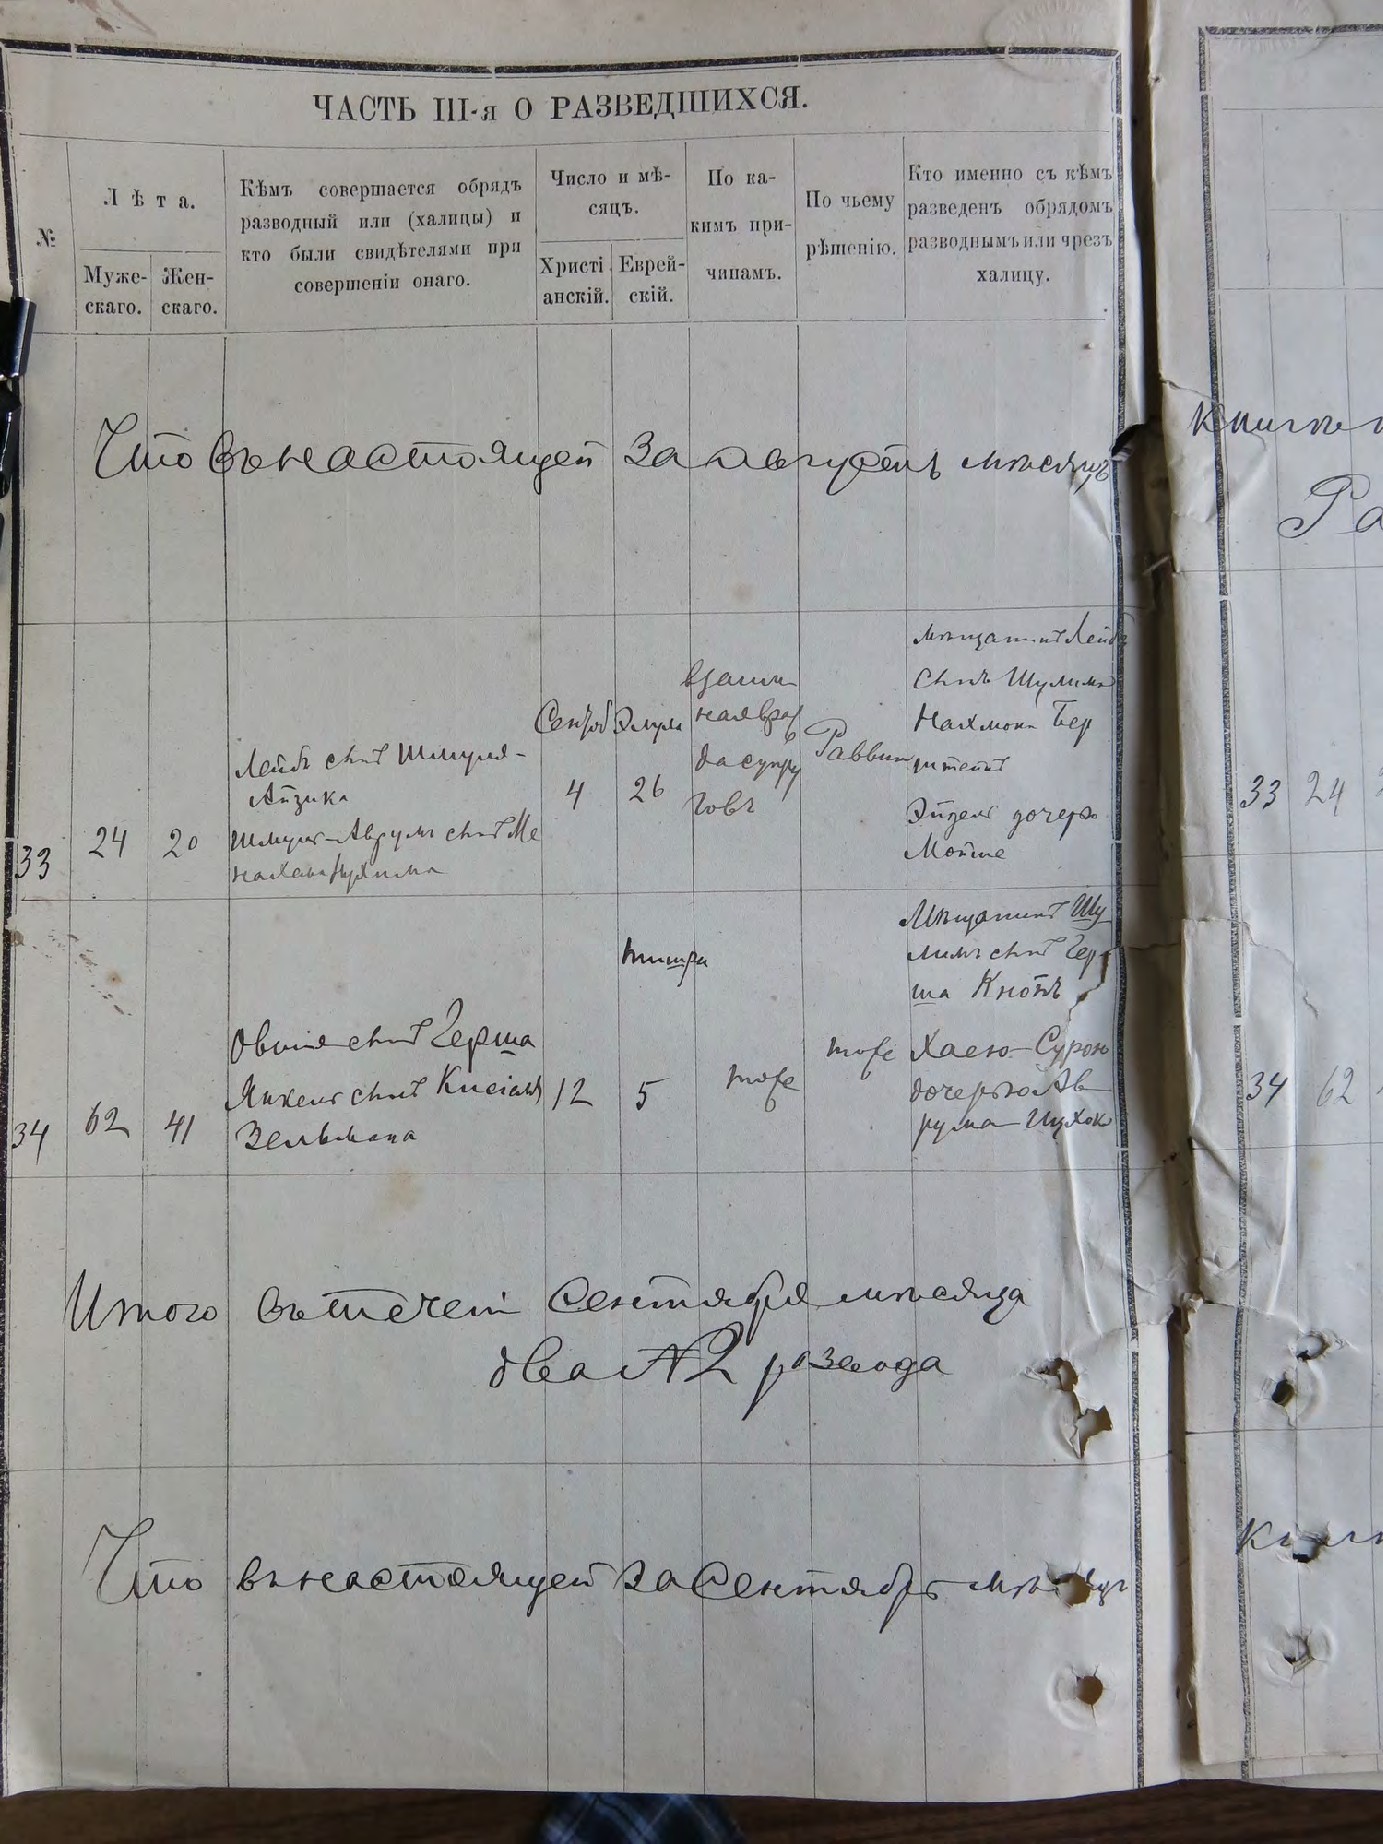 ЧАСТЬ III-я О РАЗВЕДШИХСЯ.
№
Лѣта.
Муже-
скаго.
Жен-
скаго.
Кѣмъ совершается обрядъ
разводный или (халицы) и
кто были свидѣтелями при
совершеніи онаго.
Число и мѣ-
сяцъ.
Христі
анскій.
Еврей-
скій.
По ка-
кимъ при-
чинамъ.
По чьему
рѣшенію.
Кто именно съ кѣмъ
разведенъ обрядомъ
разводнымъ или чрезъ
халицу.
Что въ настоящей за августъ мѣсяцъ
33
24
20
Лейбъ сынъ Шмуля-
Айзика
Шмуль-Аврумъ сынъ Ме
Сентяб
4
Элула
26
взаим
ная враж
да супру
говъ
Раввин
мѣщанинъ Лейбъ
сынъ Шулима
Нахмона Бер
штейнъ
Эйдель дочерью
Мойше
34
62
41
Овшія сынъ Герша
Янкель сынъ Кисіеля
Зельмана
12
тишра
5
тоже
тоже
Мѣщанинъ Шу
лимъ сынъ Гер
ша
Хаею-Сурою
дочерью Ав
рума
Итого въ течен Сентября мѣсяца
два № 2 развода
Что въ настоящей за Сентябрь
книгѣ
Ра
33 24
34 62